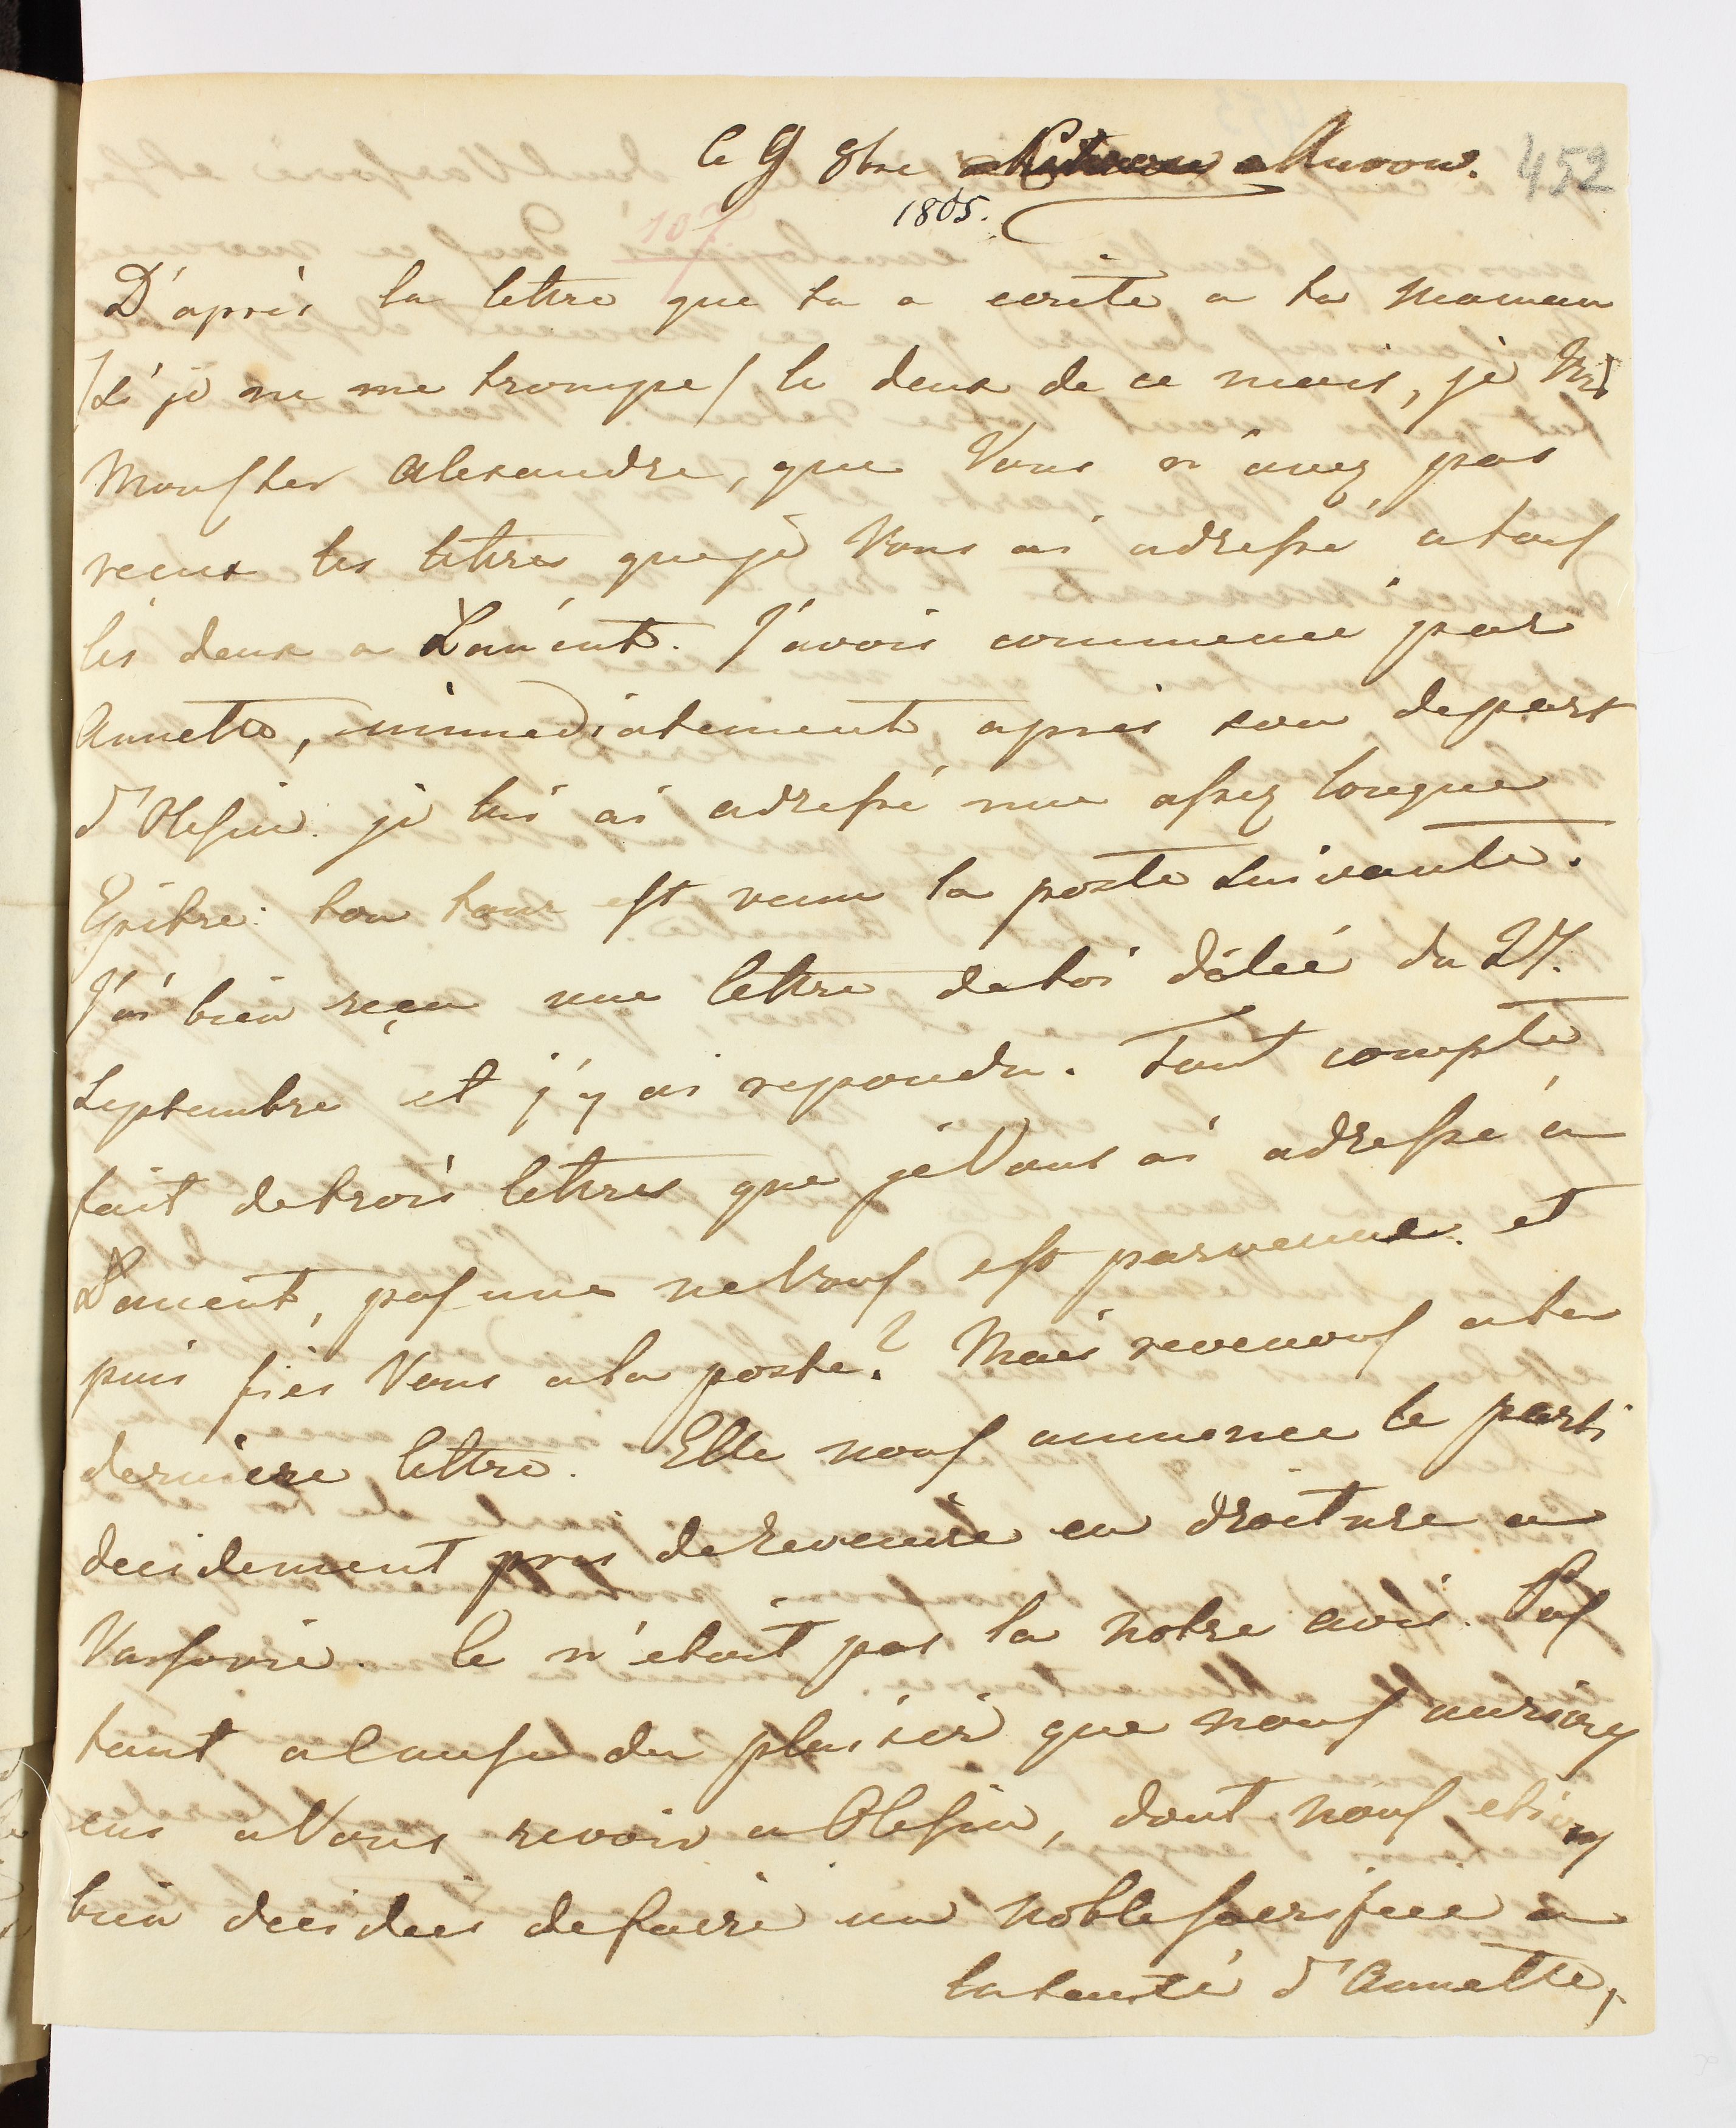 le 9 8bre a Auvow. 452
1805.
107
D'après la lettre que ta a ecrite a ta Maman
/si je ne me trompe/ le deux de ce mois, je Vois
Monsher Alexandre, que Vous n'avez pas
recus les lettres que je Vous ai adressé a tous
les deux a Lancut. J'avois commencé par
Annette, immediatement apres son depart
d'Olesin. je lui ai adressé une assez longue
Epitre: ton tour est venu la poste suivante.
J'ai bien reçu une lettre de toi datée du 27.
Septembre et j'y ai repondu. Tout compte
fait de trois lettres que je Vous ai adressé a
Lancut, pas une ne Vous est parvenue. et
puis fiés Vous a la poste? Mais revenous a ta
derniere lettre. Elle nous annonce le parti
decidement pris de revenire en droiture a
Varsovie. Ce n'etoit pas la notre avis. Pas
tant a cause du plaisir que nous aurions
eus a Vous revoir a Olesin, dont nous etions
bien decidés de faire un noble sacrifice a
la santé d'Annette,